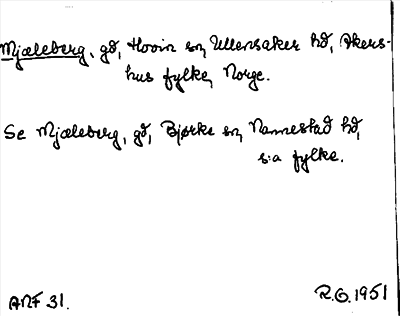 Mjæleberg, gd, Hovin sn, Ullensaker hd, Akers-
hus fylke, Norge.
Se Mjæleberg, gd, Bjørke sn, Nannestad hd,
s:a fylke.
ANF 31.
R.O. 1951